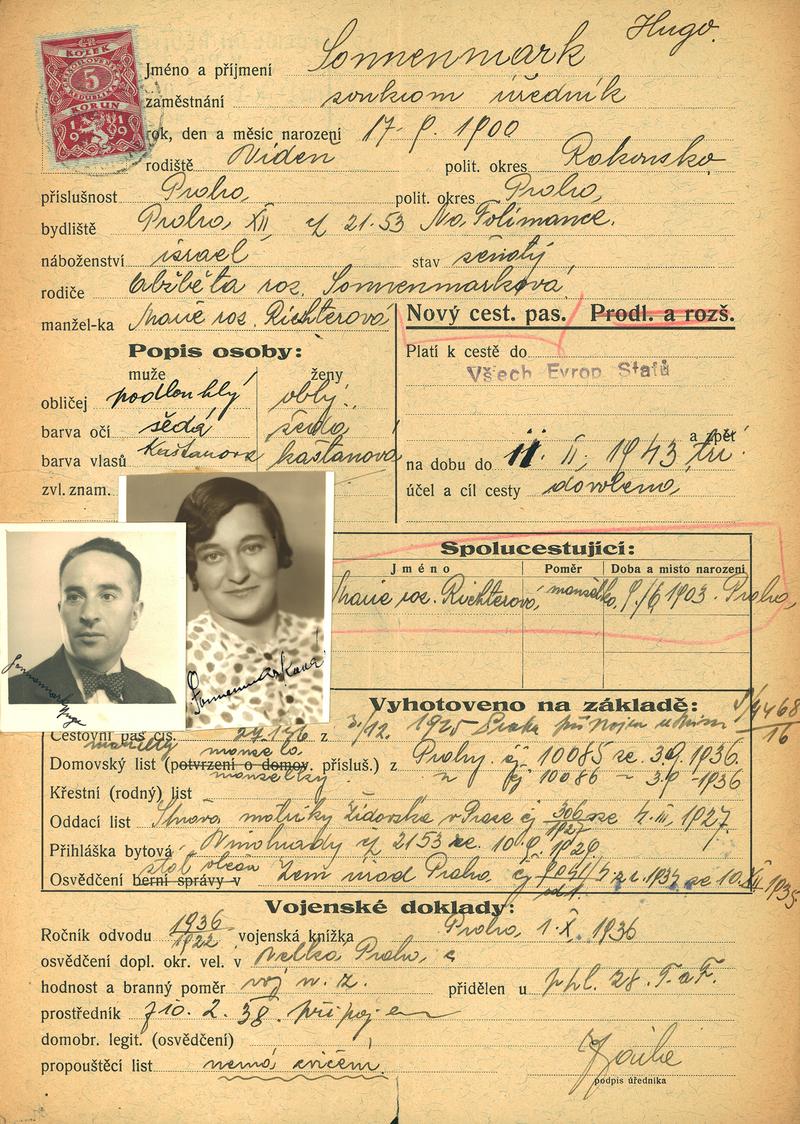 KOLEK
5
KORUN
1919
Jméno a příjmení Sonnenmark Hugo.
zaměstnání soukrom úředník
rok, den a měsíc narození 17. 9. 1900
rodiště Vídeň polit. okres Rakousko
příslušnost Praha, polit. okres Praha,
bydliště Praha XII, čj 21.53 Na Folimance.
náboženství israel stav ženatý
rodiče Alžběta roz. Sonnenmarková
manžel-ka Marie roz. Richterová
Nový cest. pas. Prodl. a rozš.
Popis osoby:
Platí k cestě do
Všech Evrop. Států
muže ženy
obličej podlouhlý oblý.
barva očí šedá šedá
barva vlasů Kaštanová kaštanová
zvl. znam.
a zpět
na dobu do 11. II. 1943 tři
účel a cíl cesty dovolená
Spolucestující:
Jméno Poměr Doba a místo narození
Marie roz. Richterová, manželka, 9./6 1903. Praha,
Sonnenmark Hugo
Sonnenmarková
Vyhotoveno na základě:
Cestovní pas čís. z 3./12. 1925
manžela
Domovský list (potvrzení o domov. přísluš.) z Prahy. čj 10085 ze 3.9. 1936.
manželky " čj 10086 – 3.9 – 1936
Křestní (rodný) list
Oddací list Správa matriky židovské v Praze čj 306/1927 ze 4. III. 1927.
Přihláška bytová Vinohrady čj 2153 ze. 10.9. 1929.
Osvědčení berní správy v Zem úřad Praha čj
Vojenské doklady:
Ročník odvodu 1936/1922 vojenská knížka Praha, 1. X. 1936
osvědčení dopl. okr. vel. v Velká Praha,
hodnost a branný poměr voj v. z. přidělen u
prostředník 10. 2. 38. připojen
domobr. legit. (osvědčení)
propouštěcí list nemá cvičení.
podpis úředníka